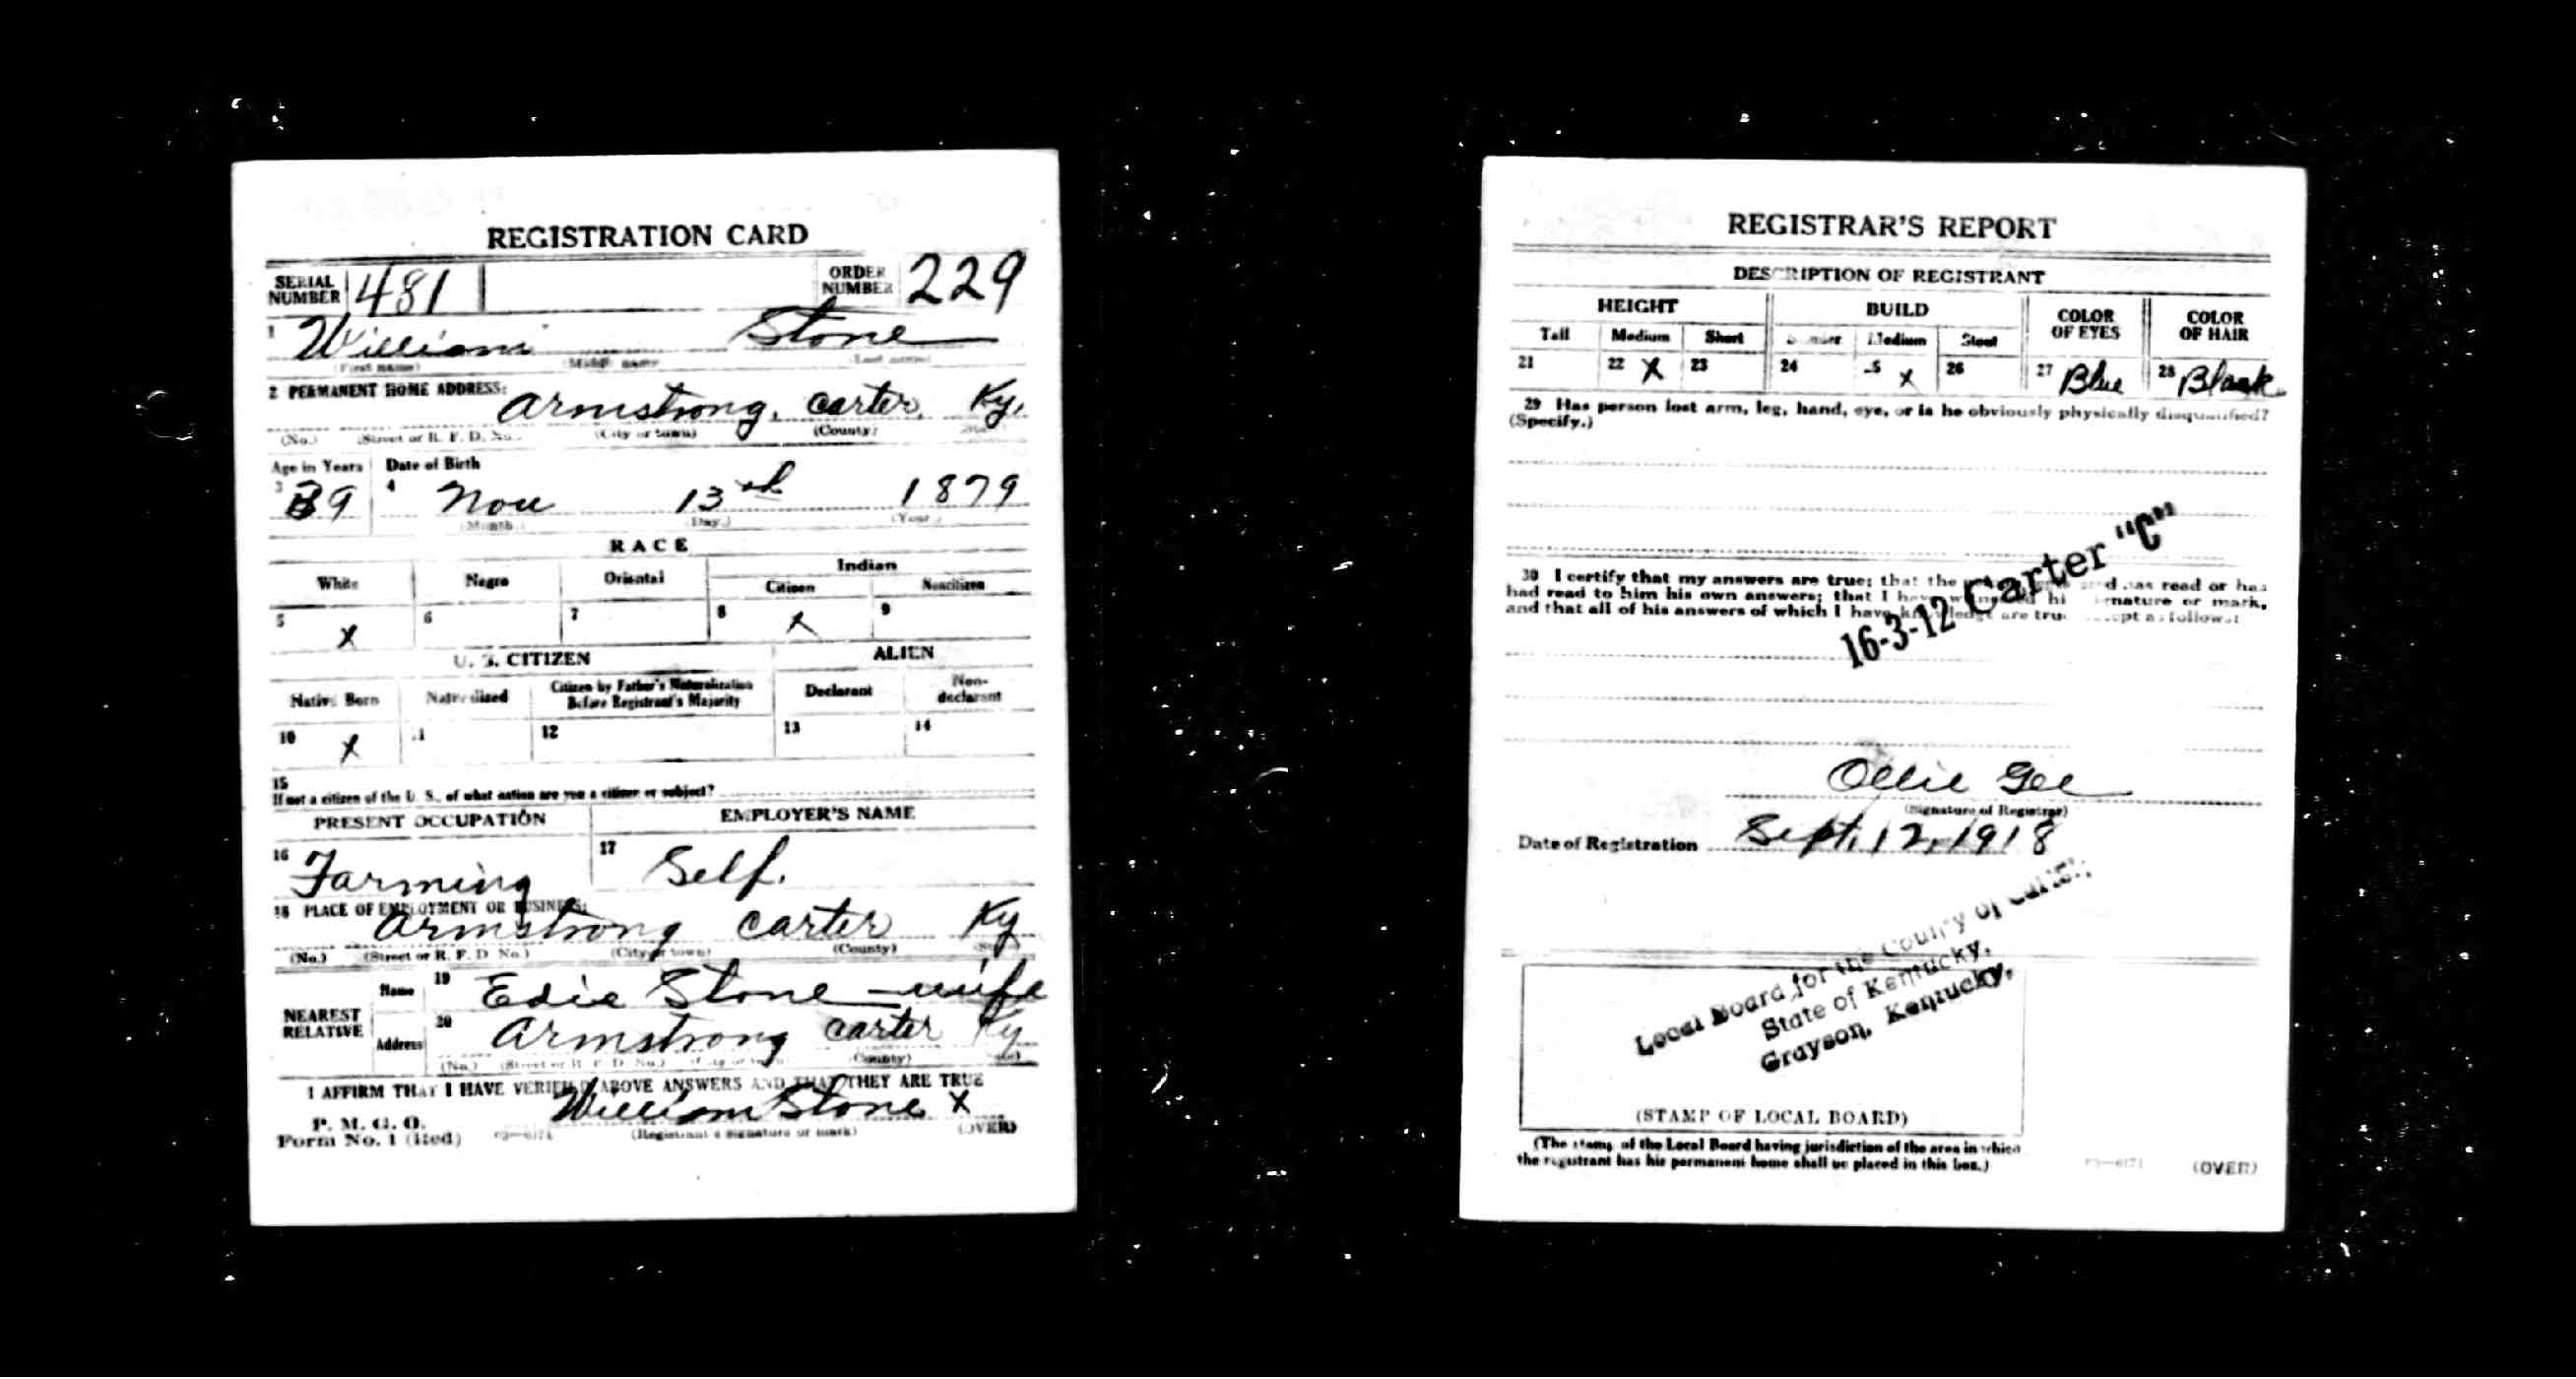 REGISTRATION CARD
SERIAL NUMBER 481 ORDER NUMBER 229
1 William Stone
(First name) (Middle name) (Last name)
2 PERMANENT HOME ADDRESS:
Armstrong, Carter, Ky,
(No.) (Street or R. F. D. No.) (City or town) (County)
Age in Years Date of Birth
3 39 4 Nov 13th 1879
(Month.) (Day.) (Year.)
RACE
White Negro Oriental Indian
Citizen Noncitizen
5 X 6 7 8 X 9
U. S. CITIZEN ALIEN
Native Born Naturalized Citizen by Father's Naturalization Before Registrant's Majority Declarant Non-declarant
10 X 11 12 13 14
15
If not a citizen of the U. S., of what nation are you a citizen or subject?
PRESENT OCCUPATION EMPLOYER'S NAME
16 Farming 17 Self.
18 PLACE OF EMPLOYMENT OR BUSINESS:
Armstrong Carter Ky
(No.) (Street or R. F. D. No.) (City or town) (County) (State)
NEAREST RELATIVE
Name 19 Edie Stone - wife
Address 20 Armstrong Carter Ky
(No.) (Street or R. F. D. No.) (City or town) (County)
I AFFIRM THAT I HAVE VERIFIED ABOVE ANSWERS AND THAT THEY ARE TRUE
William Stone X
P. M. G. O.
Form No. 1 (Red) (Registrant's signature or mark) (OVER)
REGISTRAR'S REPORT
DESCRIPTION OF REGISTRANT
HEIGHT BUILD COLOR OF EYES COLOR OF HAIR
Tall Medium Short Slender Medium Stout
21 22 X 23 24 25 X 26 27 Blue 28 Black
29 Has person lost arm, leg, hand, eye, or is he obviously physically disqualified?
(Specify.)
30 I certify that my answers are true; that the has read or has
had read to him his own answers; that I have witnessed his signature or mark,
and that all of his answers of which I have knowledge are true except as follows:
16-3-12 Carter "C"
Ollie Gee
(Signature of Registrar)
Date of Registration Sept. 12, 1918
Local Board for the County of Carter,
State of Kentucky,
Grayson, Kentucky,
(STAMP OF LOCAL BOARD)
(The stamp of the Local Board having jurisdiction of the area in which
the registrant has his permanent home shall be placed in this box.)
(OVER)